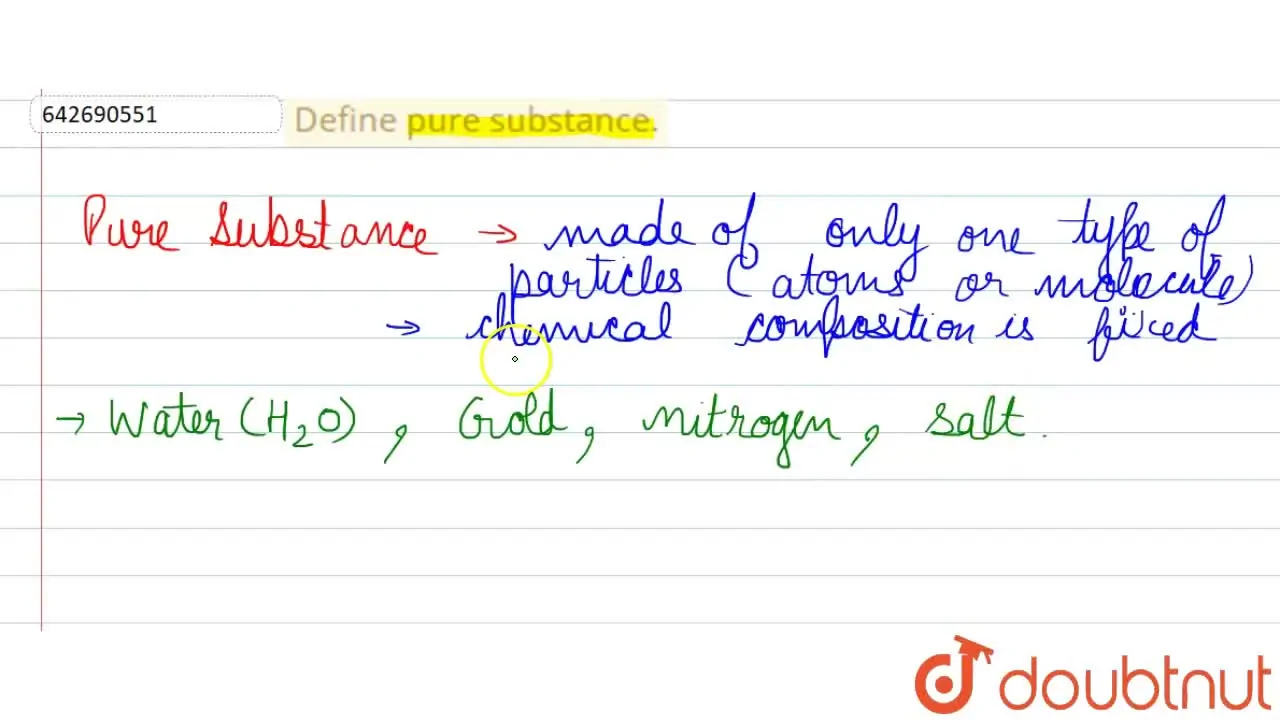 642690551
Define pure substance.
Pure Substance → made of only one type of
particles (atoms or molecule)
→ chemical composition is fixed
→ Water (H₂O), Gold, nitrogen, salt.
doubtnut